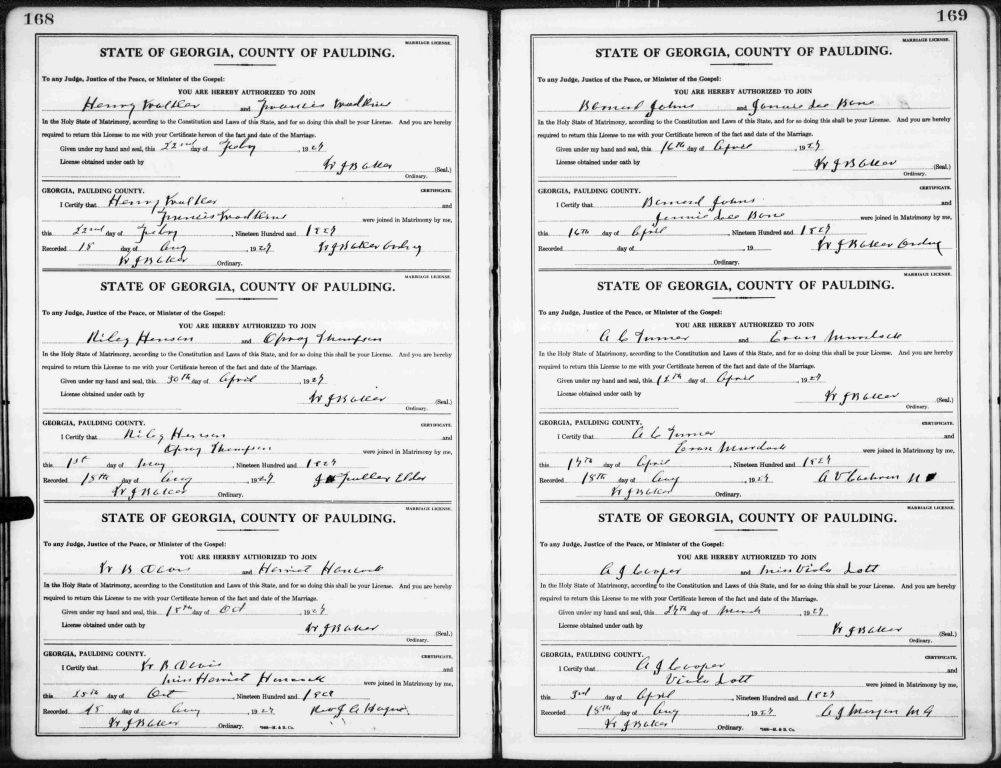 168
MARRIAGE LICENSE.
STATE OF GEORGIA, COUNTY OF PAULDING.
To any Judge, Justice of the Peace, or Minister of the Gospel:
YOU ARE HEREBY AUTHORIZED TO JOIN
Henry Walker and Francis
In the Holy State of Matrimony, according to the Constitution and Laws of this State, and for so doing this shall be your License. And you are hereby
required to return this License to me with your Certificate hereon of the fact and date of the Marriage.
Given under my hand and seal, this 22nd day of Feby , 19
License obtained under oath by
J Baker (Seal.)
Ordinary.
GEORGIA, PAULDING COUNTY. CERTIFICATE.
I Certify that Henry Walker and
Francis
were joined in Matrimony by me,
this 22nd day of Feby , Nineteen Hundred and
Recorded 18 day of Aug , 19 J Baker
J Baker Ordinary.
MARRIAGE LICENSE.
STATE OF GEORGIA, COUNTY OF PAULDING.
To any Judge, Justice of the Peace, or Minister of the Gospel:
YOU ARE HEREBY AUTHORIZED TO JOIN
Riley Henson and Thompson
In the Holy State of Matrimony, according to the Constitution and Laws of this State, and for so doing this shall be your License. And you are hereby
required to return this License to me with your Certificate hereon of the fact and date of the Marriage.
Given under my hand and seal, this 30th day of April , 19
License obtained under oath by
J Baker (Seal.)
Ordinary.
GEORGIA, PAULDING COUNTY. CERTIFICATE.
I Certify that Riley Henson and
Thompson
were joined in Matrimony by me,
this 1st day of May , Nineteen Hundred and
Recorded 18th day of Aug , 19 Fuller Elder
J Baker Ordinary.
MARRIAGE LICENSE.
STATE OF GEORGIA, COUNTY OF PAULDING.
To any Judge, Justice of the Peace, or Minister of the Gospel:
YOU ARE HEREBY AUTHORIZED TO JOIN
B Davis and Harriet Hancock
In the Holy State of Matrimony, according to the Constitution and Laws of this State, and for so doing this shall be your License. And you are hereby
required to return this License to me with your Certificate hereon of the fact and date of the Marriage.
Given under my hand and seal, this day of Oct , 19
License obtained under oath by
J Baker (Seal.)
Ordinary.
GEORGIA, PAULDING COUNTY. CERTIFICATE.
I Certify that B Davis and
Miss Harriet Hancock
were joined in Matrimony by me,
this day of Oct , Nineteen Hundred and
Recorded 18 day of Aug , 19 Rev J A
J Baker Ordinary.
169
MARRIAGE LICENSE.
STATE OF GEORGIA, COUNTY OF PAULDING.
To any Judge, Justice of the Peace, or Minister of the Gospel:
YOU ARE HEREBY AUTHORIZED TO JOIN
Bernard Johns and Jennie Lee Bone
In the Holy State of Matrimony, according to the Constitution and Laws of this State, and for so doing this shall be your License. And you are hereby
required to return this License to me with your Certificate hereon of the fact and date of the Marriage.
Given under my hand and seal, this 16th day of April , 19
License obtained under oath by
J Baker (Seal.)
Ordinary.
GEORGIA, PAULDING COUNTY. CERTIFICATE.
I Certify that Bernard Johns and
Jennie Lee Bone
were joined in Matrimony by me,
this 16th day of April , Nineteen Hundred and
Recorded day of , 19 J Baker
Ordinary.
MARRIAGE LICENSE.
STATE OF GEORGIA, COUNTY OF PAULDING.
To any Judge, Justice of the Peace, or Minister of the Gospel:
YOU ARE HEREBY AUTHORIZED TO JOIN
A C Turner and Murdock
In the Holy State of Matrimony, according to the Constitution and Laws of this State, and for so doing this shall be your License. And you are hereby
required to return this License to me with your Certificate hereon of the fact and date of the Marriage.
Given under my hand and seal, this day of April , 19
License obtained under oath by
J Baker (Seal.)
Ordinary.
GEORGIA, PAULDING COUNTY. CERTIFICATE.
I Certify that A C Turner and
Murdock
were joined in Matrimony by me,
this day of April , Nineteen Hundred and
Recorded 18th day of Aug , 19 Cochran
J Baker Ordinary.
MARRIAGE LICENSE.
STATE OF GEORGIA, COUNTY OF PAULDING.
To any Judge, Justice of the Peace, or Minister of the Gospel:
YOU ARE HEREBY AUTHORIZED TO JOIN
A J Cooper and Miss Viola Lott
In the Holy State of Matrimony, according to the Constitution and Laws of this State, and for so doing this shall be your License. And you are hereby
required to return this License to me with your Certificate hereon of the fact and date of the Marriage.
Given under my hand and seal, this day of March , 19
License obtained under oath by
J Baker (Seal.)
Ordinary.
GEORGIA, PAULDING COUNTY. CERTIFICATE.
I Certify that A J Cooper and
Viola Lott
were joined in Matrimony by me,
this 3rd day of April , Nineteen Hundred and
Recorded 18th day of Aug , 19 A J Morgan
J Baker Ordinary.